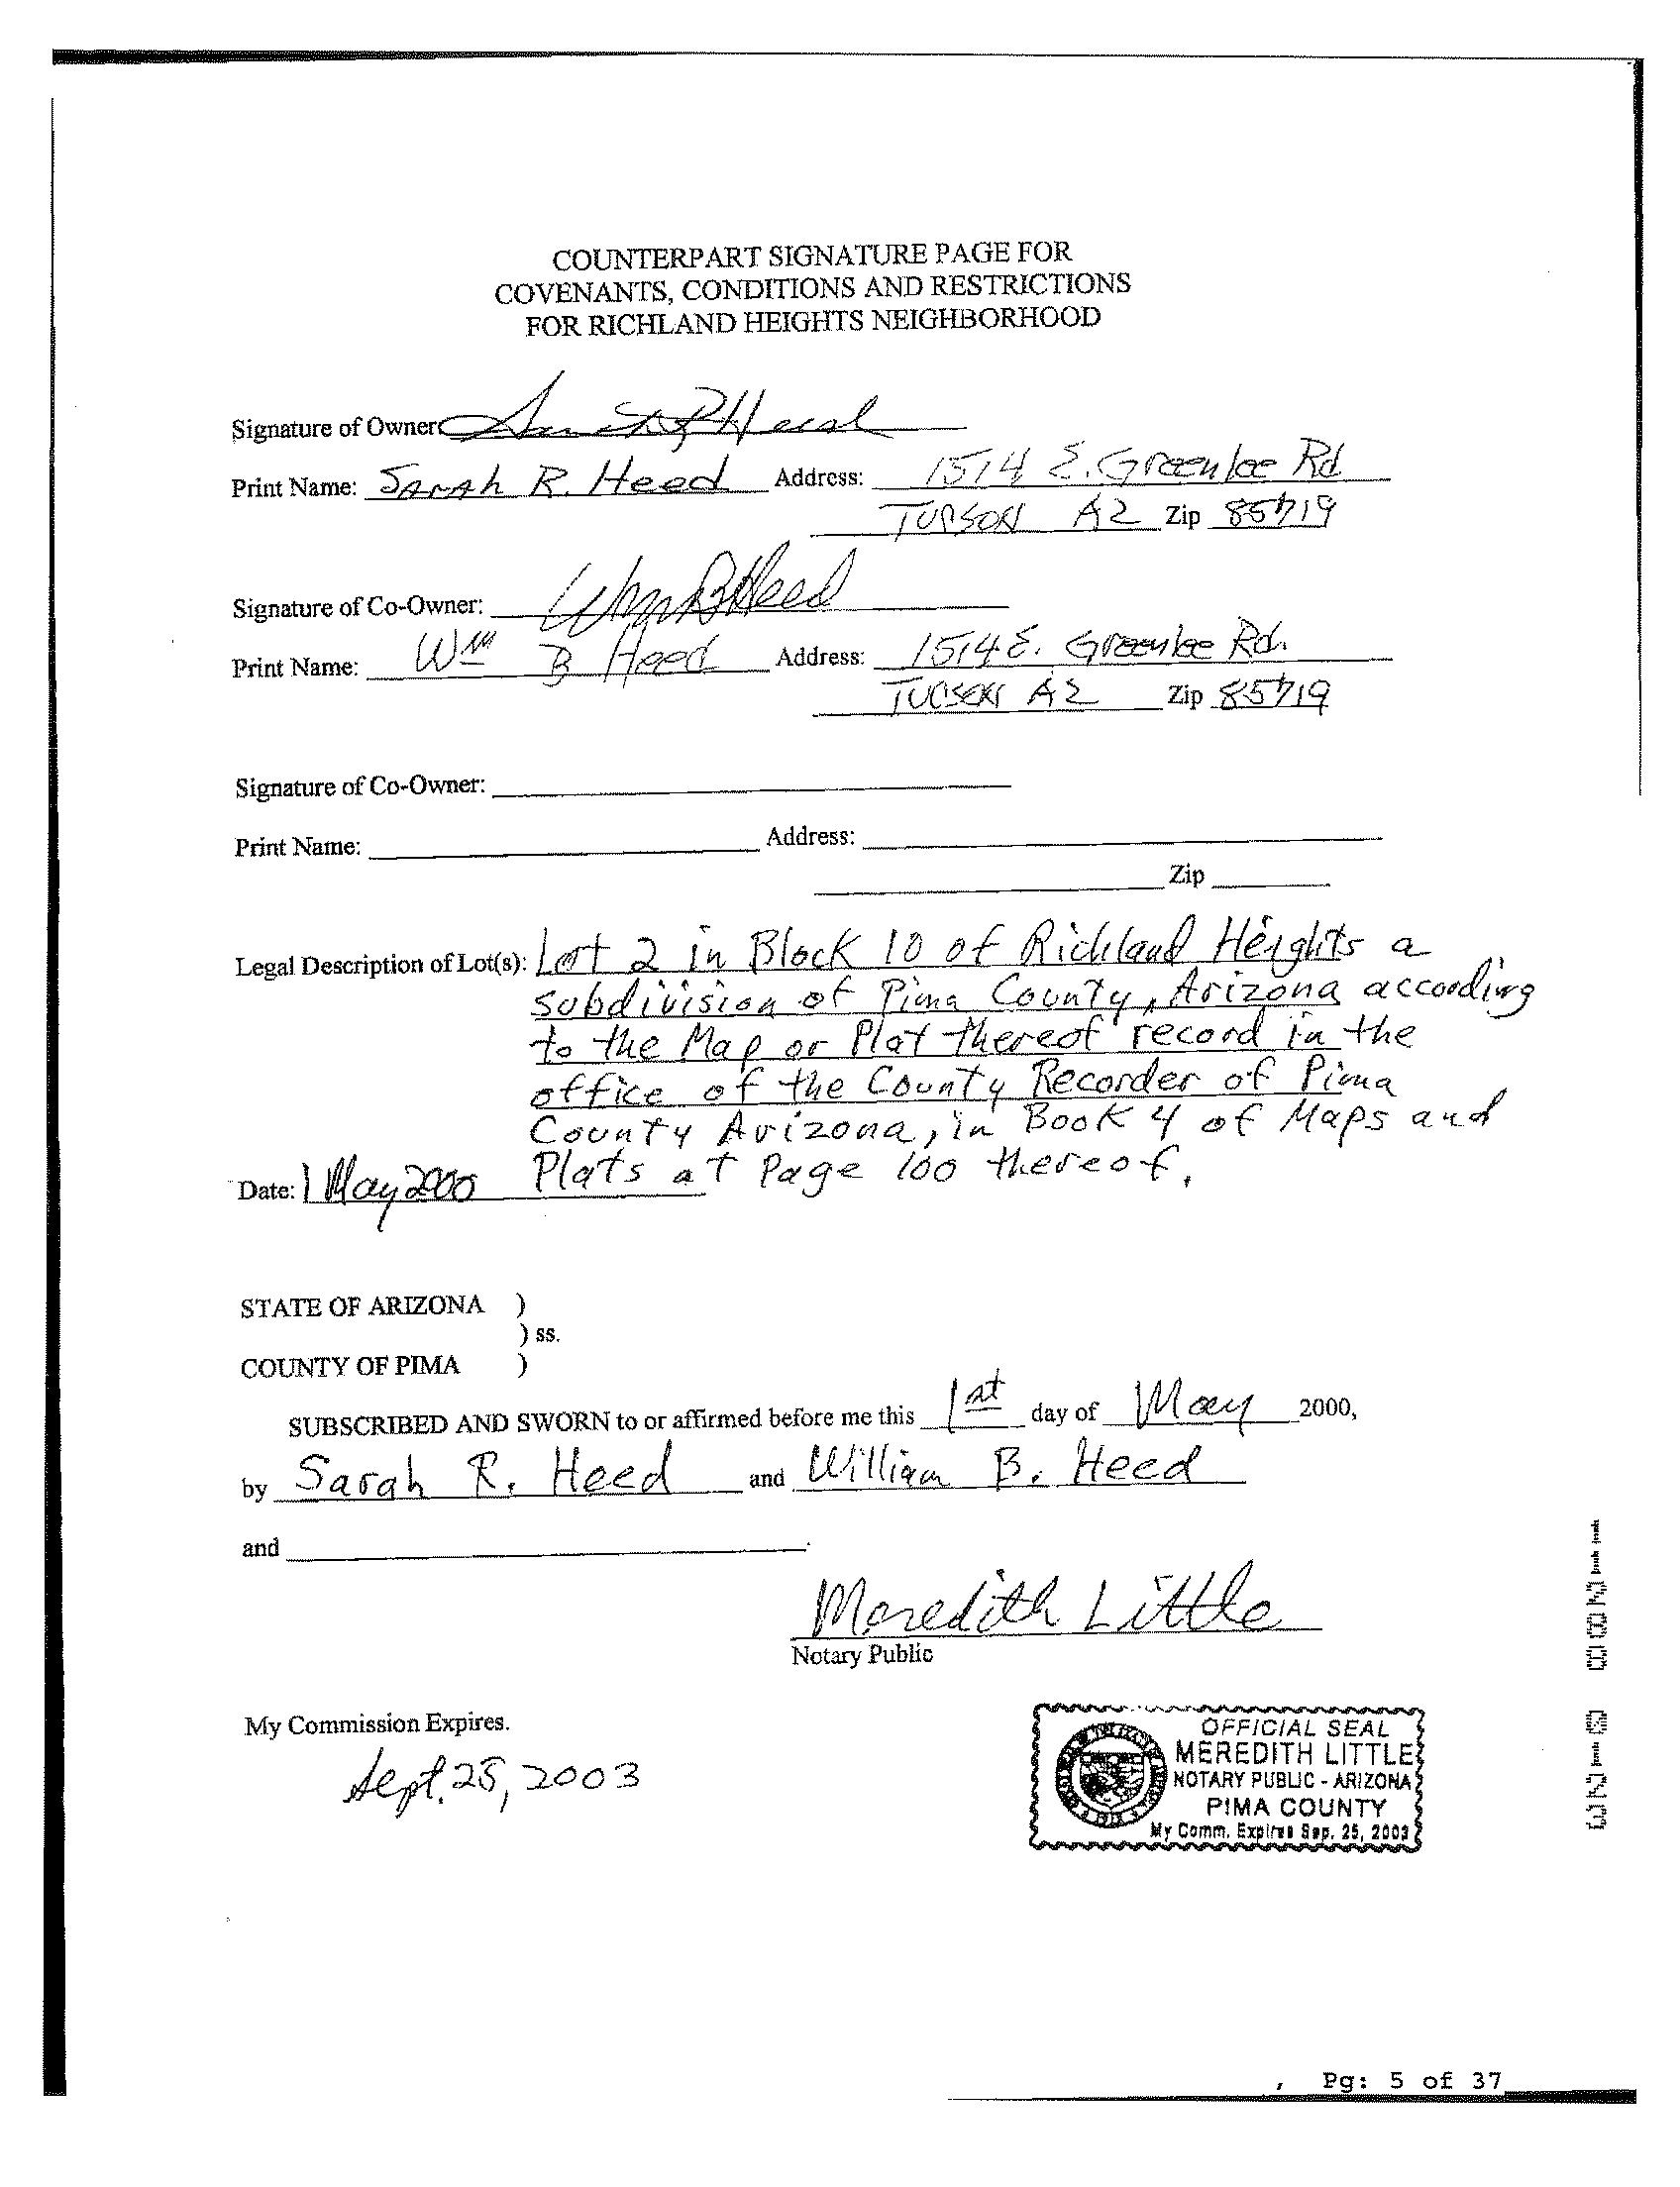 COUNTERPART SIGNATURE PAGE FOR
COVENANTS, CONDITIONS AND RESTRICTIONS
FOR RICHLAND HEIGHTS NEIGHBORHOOD
Signature of Owner: Sarah R Heed
Print Name: Sarah R. Heed Address: 1514 E. Greenlee Rd
TUCSON AZ Zip 85719
Signature of Co-Owner: Wm B Heed
Print Name: Wm B Heed Address: 1514 E. Greenlee Rd.
TUCSON AZ Zip 85719
Signature of Co-Owner:
Print Name: Address:
Zip
Legal Description of Lot(s): Lot 2 in Block 10 of Richland Heights a
subdivision of Pima County, Arizona according
to the Map or Plat thereof record in the
office of the County Recorder of Pima
County Arizona, in Book 4 of Maps and
Plats at Page 100 thereof.
Date: 1 May 2000
STATE OF ARIZONA )
) ss.
COUNTY OF PIMA )
SUBSCRIBED AND SWORN to or affirmed before me this 1st day of May 2000,
by Sarah R. Heed and William B. Heed
and .
Meredith Little
Notary Public
My Commission Expires.
Sept. 25, 2003
OFFICIAL SEAL
MEREDITH LITTLE
NOTARY PUBLIC - ARIZONA
PIMA COUNTY
My Comm. Expires Sep. 25, 2003
, Pg: 5 of 37